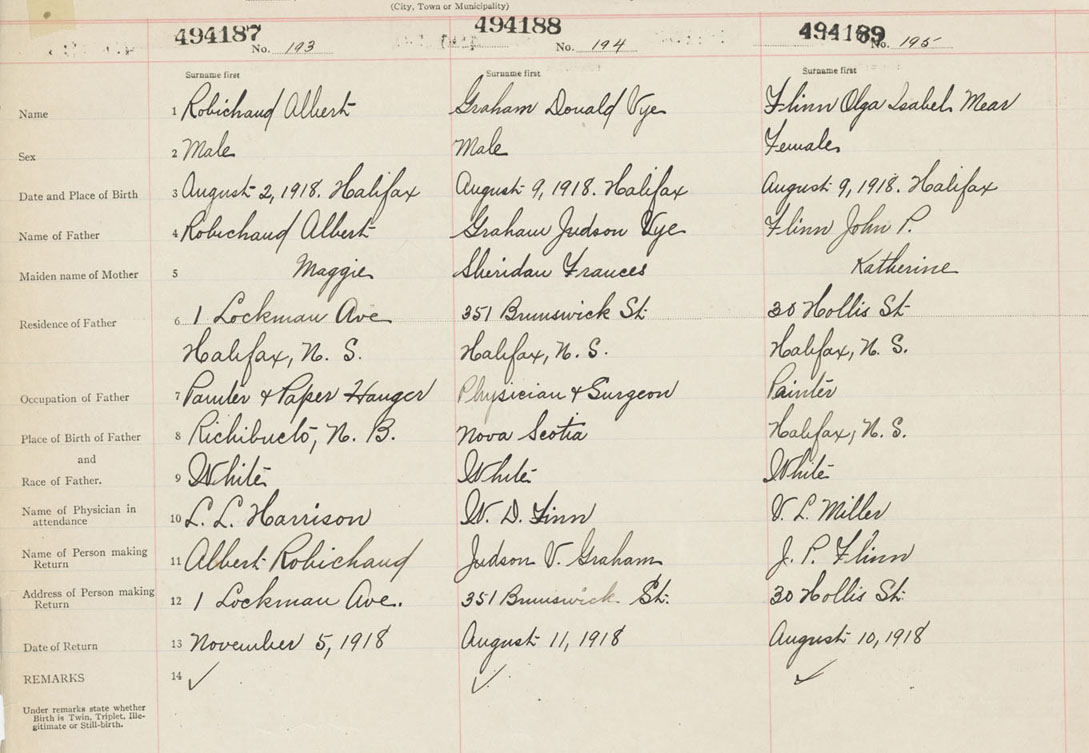 (City, Town or Municipality)
494187 494188 494189
No. 193 No. 194 No. 195
Surname first Surname first Surname first
Name 1 Robichaud Albert Graham Donald Vye Flinn Olga Isabel Mear
Sex 2 Male Male Female
Date and Place of Birth 3 August 2, 1918. Halifax August 9, 1918. Halifax August 9, 1918. Halifax
Name of Father 4 Robichaud Albert Graham Judson Vye Flinn John P.
Maiden name of Mother 5 Maggie Sheridan Frances Katherine
Residence of Father 6 1 Lockman Ave 351 Brunswick St. 30 Hollis St.
Halifax, N. S. Halifax, N. S. Halifax, N. S.
Occupation of Father 7 Painter & Paper Hanger Physician & Surgeon Painter
Place of Birth of Father 8 Richibucto, N. B. Nova Scotia Halifax, N. S.
and
Race of Father. 9 White White White
Name of Physician in
attendance 10 L. L. Harrison W. D. Finn V. L. Miller
Name of Person making
Return 11 Albert Robichaud Judson V. Graham J. P. Flinn
Address of Person making
Return 12 1 Lockman Ave. 351 Brunswick St. 30 Hollis St.
Date of Return 13 November 5, 1918 August 11, 1918 August 10, 1918
REMARKS 14 ✓ ✓ ✓
Under remarks state whether
Birth is Twin, Triplet, Ille-
gitimate or Still-birth.